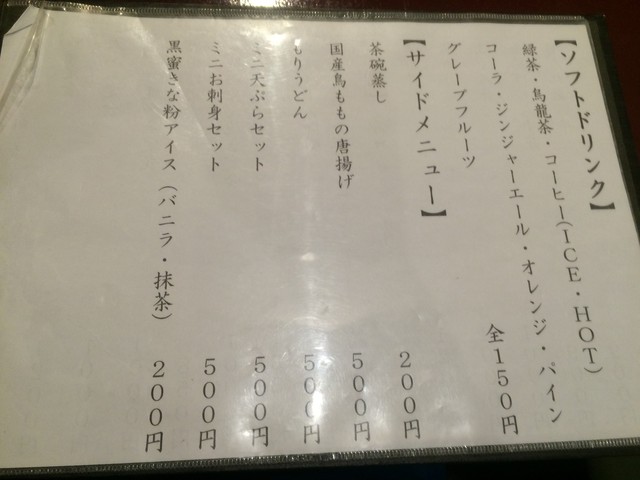 【ソフトドリンク】
緑茶・烏龍茶・コーヒー（ＩＣＥ・ＨＯＴ）
コーラ・ジンジャーエール・オレンジ・パイン
グレープフルーツ 全１５０円
【サイドメニュー】
茶碗蒸し ２００円
国産鳥ももの唐揚げ ５００円
もりうどん ５００円
ミニ天ぷらセット ５００円
ミニお刺身セット ５００円
黒蜜きな粉アイス（バニラ・抹茶） ２００円